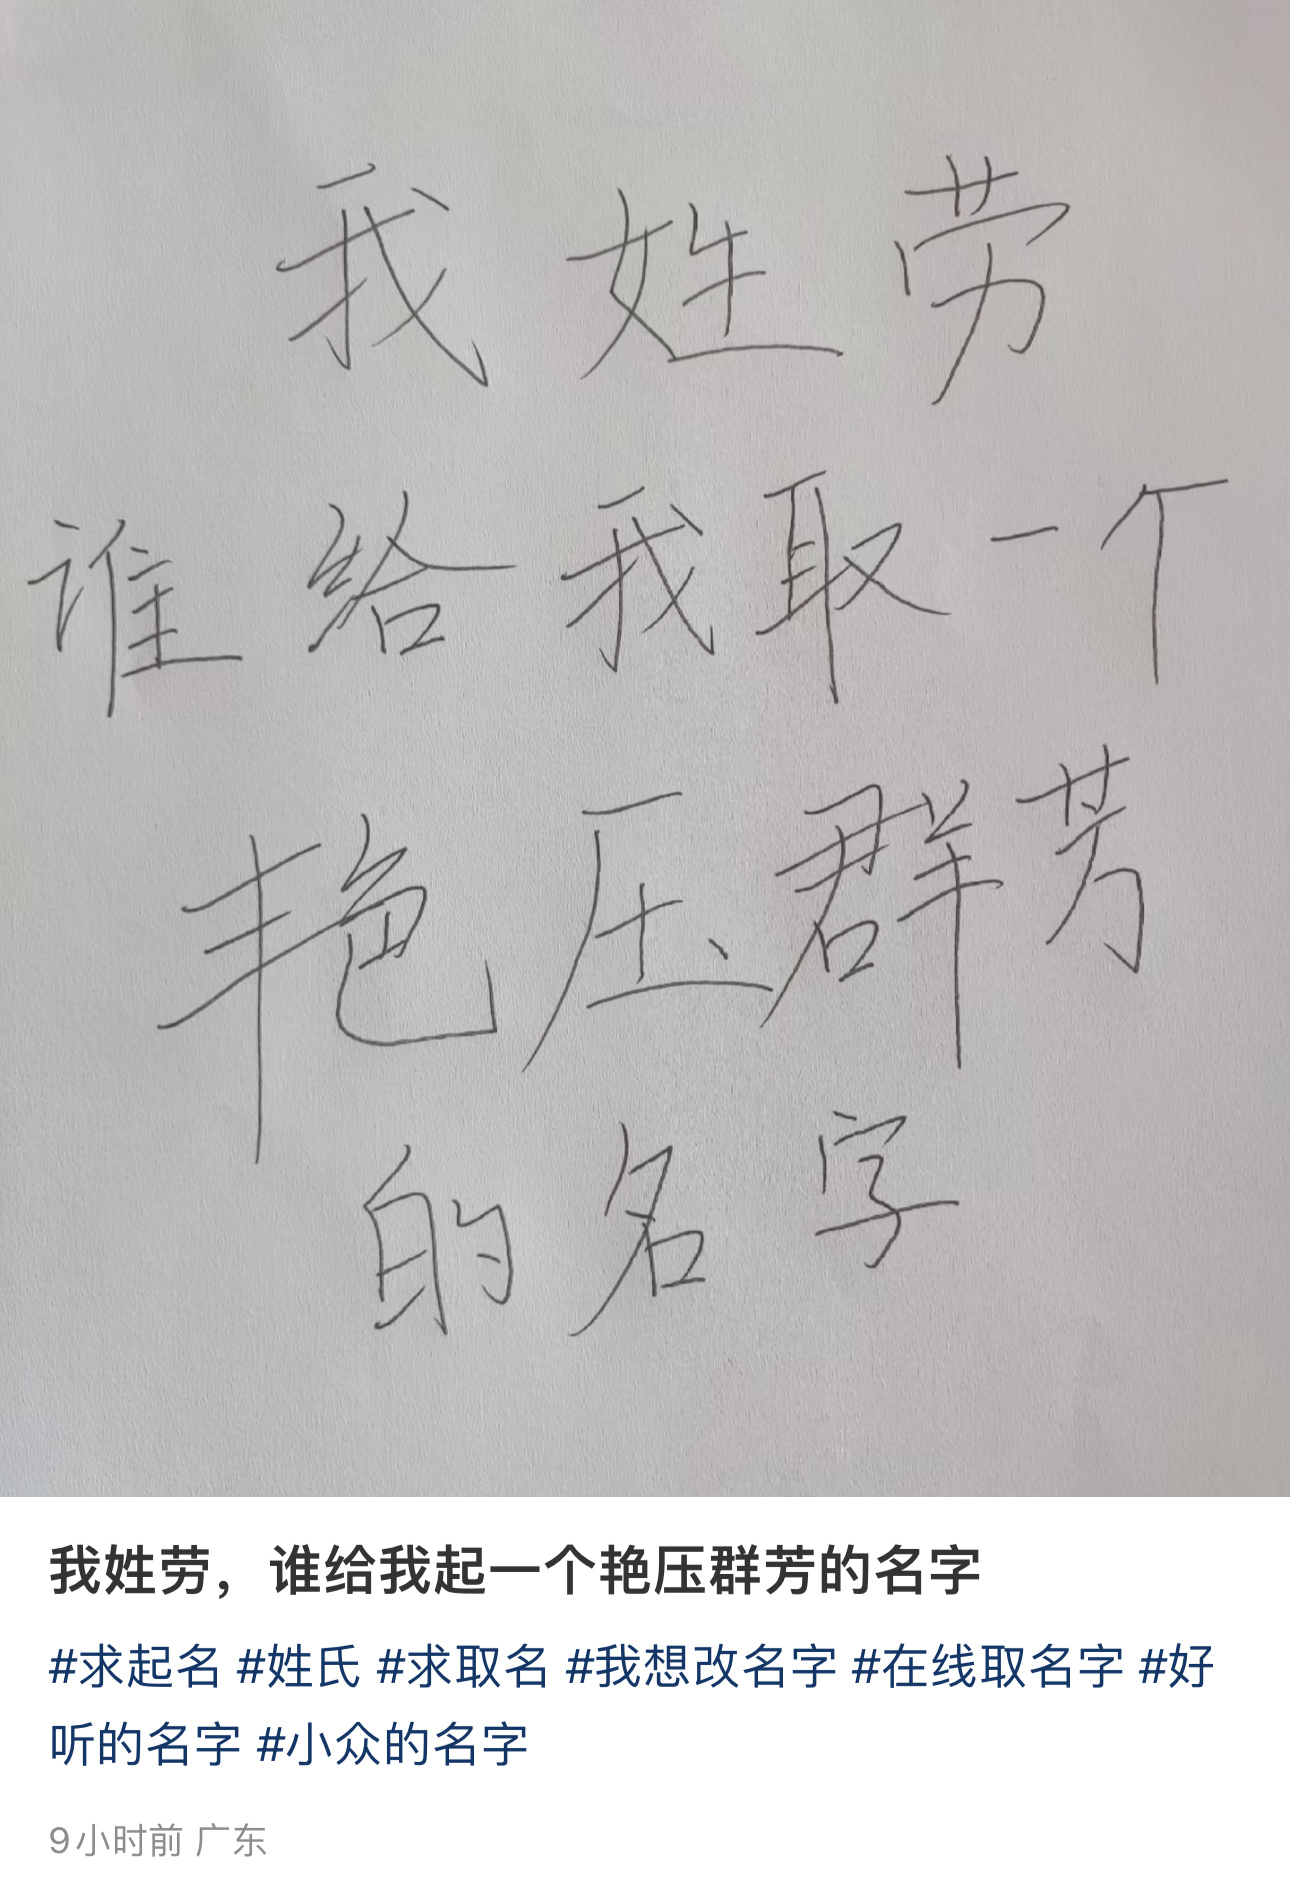 我姓劳
谁给我取一个
艳压群芳
的名字
我姓劳，谁给我起一个艳压群芳的名字
#求起名 #姓氏 #求取名 #我想改名字 #在线取名字 #好
听的名字 #小众的名字
9小时前 广东